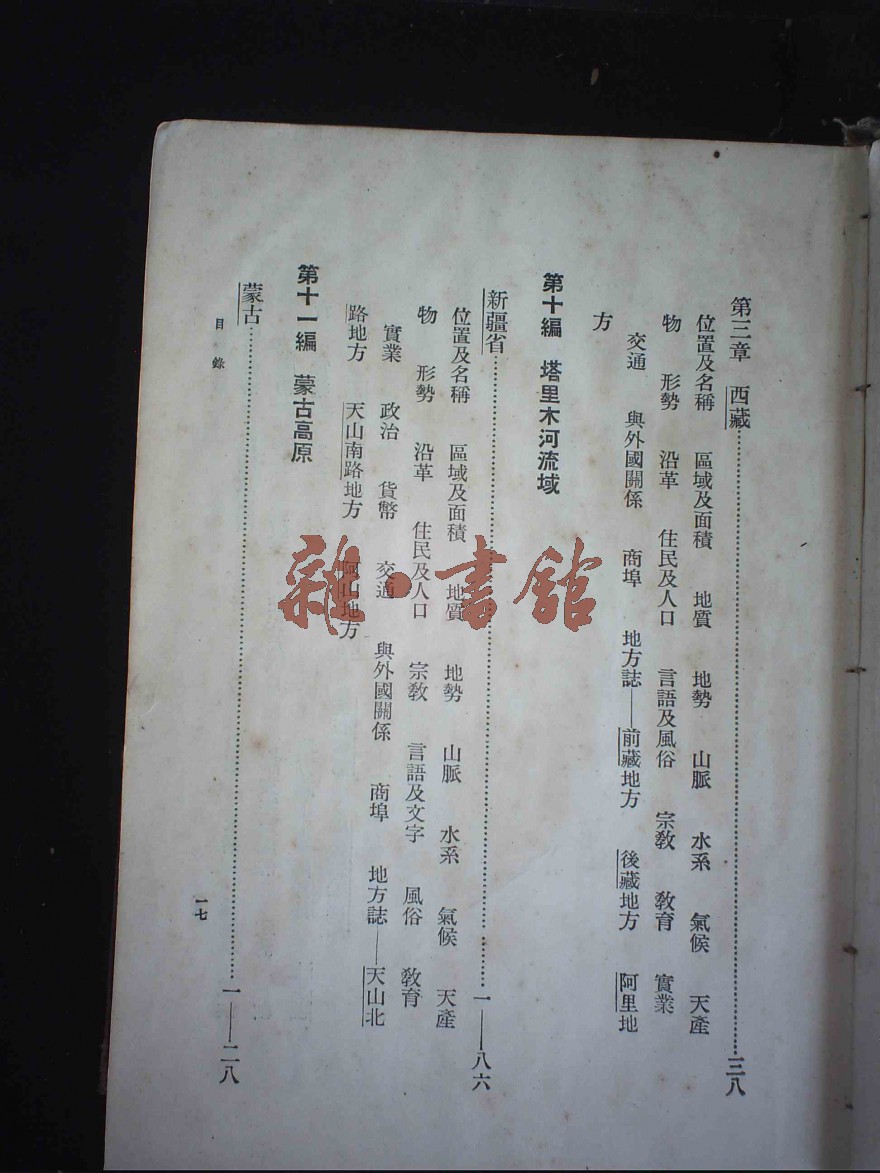 第三章 西藏……三八
位置及名稱 區域及面積 地質 地勢 山脈 水系 氣候 天產
物 形勢 沿革 住民及人口 言語及風俗 宗教 教育 實業
交通 與外國關係 商埠 地方誌——前藏地方 後藏地方 阿里地
方
第十編 塔里木河流域
新疆省……一——八六
位置及名稱 區域及面積 地質 地勢 山脈 水系 氣候 天產
物 形勢 沿革 住民及人口 宗教 言語及文字 風俗 教育
實業 政治 貨幣 交通 與外國關係 商埠 地方誌——天山北
路地方 天山南路地方 阿山地方
第十一編 蒙古高原
蒙古……一——二八
目錄
一七
雜·書館